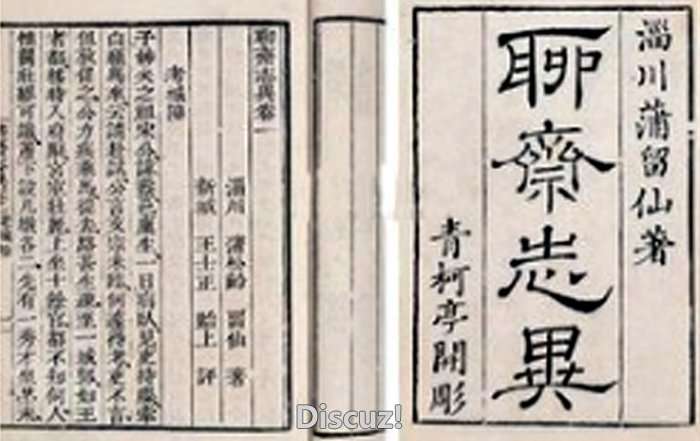 淄川蒲留仙著
聊齋志異
青柯亭開彫
聊齋志異卷一
淄川 蒲松齡 留仙 著
新城 王士正 貽上 評
考城隍
子姊夫之祖宋公諱燾邑廩生一日病臥見吏持牒牽
白顛馬來云請赴試公言文宗未臨何遽得考吏不言
但敦促之公力疾乘馬從去路甚生疎至一城郭如王
者都移時入府廨宮室壯麗上坐十餘官都不知何人
惟關壯繆可識簷下設几墩各二先有一秀才坐其末
Discuz!